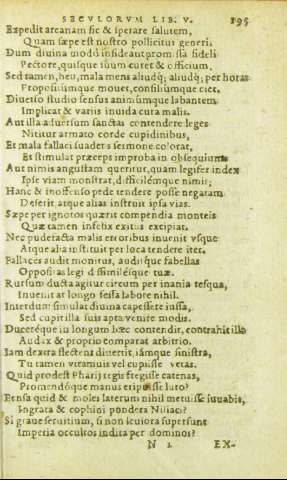 SECVLORVM LIB. V. 195
Expedit arcanam sic & sperare salutem,
Quam sæpe est nostro pollicitus generi.
Dum diuina modò insideant promissa fideli
Pectore, quisque suum curet & officium,
Sed tamen, heu, mala mens aliudq; aliudq; per horas
Propositúmque mouet, consiliúmque ciet.
Diuerso studio sensus animúmque labantem
Implicat & variis inuida cura malis.
Aut illa aduersum sanctas contendere leges
Nititur armato corde cupidinibus,
Et mala fallaci suadens sermone colorat,
Et stimulat præceps improba in obsequium
Aut nimis angustam queritur, quam legifer index
Ipse viam monstrat, difficilémque nimis;
Hanc & inoffenso pede tendere posse negatam
Deserit, atque alias instruit ipsa vias.
Sæpe per ignotos quærit compendia monteis
Quæ tamen infelix exitus excipiat.
Nec pudefacta malis erroribus inuenit vsque
Atque alia instituit per loca tendere iter.
Fallaces audit monitus, auditque fabellas
Oppositas legi dissimilésque tuæ.
Rursum ducta agitur circum per inania tesqua,
Inuenit at longo fessa labore nihil.
Interdum simulat diuina capessere iussa,
Sed cupit illa suis apta venire modis.
Duceréque in longum hæc contendit, contrahit illa
Audax & proprio comparat arbitrio.
Iam dextra flectens diuertit, iámque sinistra,
Tu tamen vtramuis vel cupiisse vetas.
Quid prodest Pharij regis fregisse catenas,
Promendóque manus eripuisse luto?
Pensa quid & moles laterum nihil metuisse iuuabit,
Ingrata & cophini pondera Niliaci?
Si graue seruitium, si non leuiora supersunt
Imperia occultos indita per dominos?
N 2 EX-